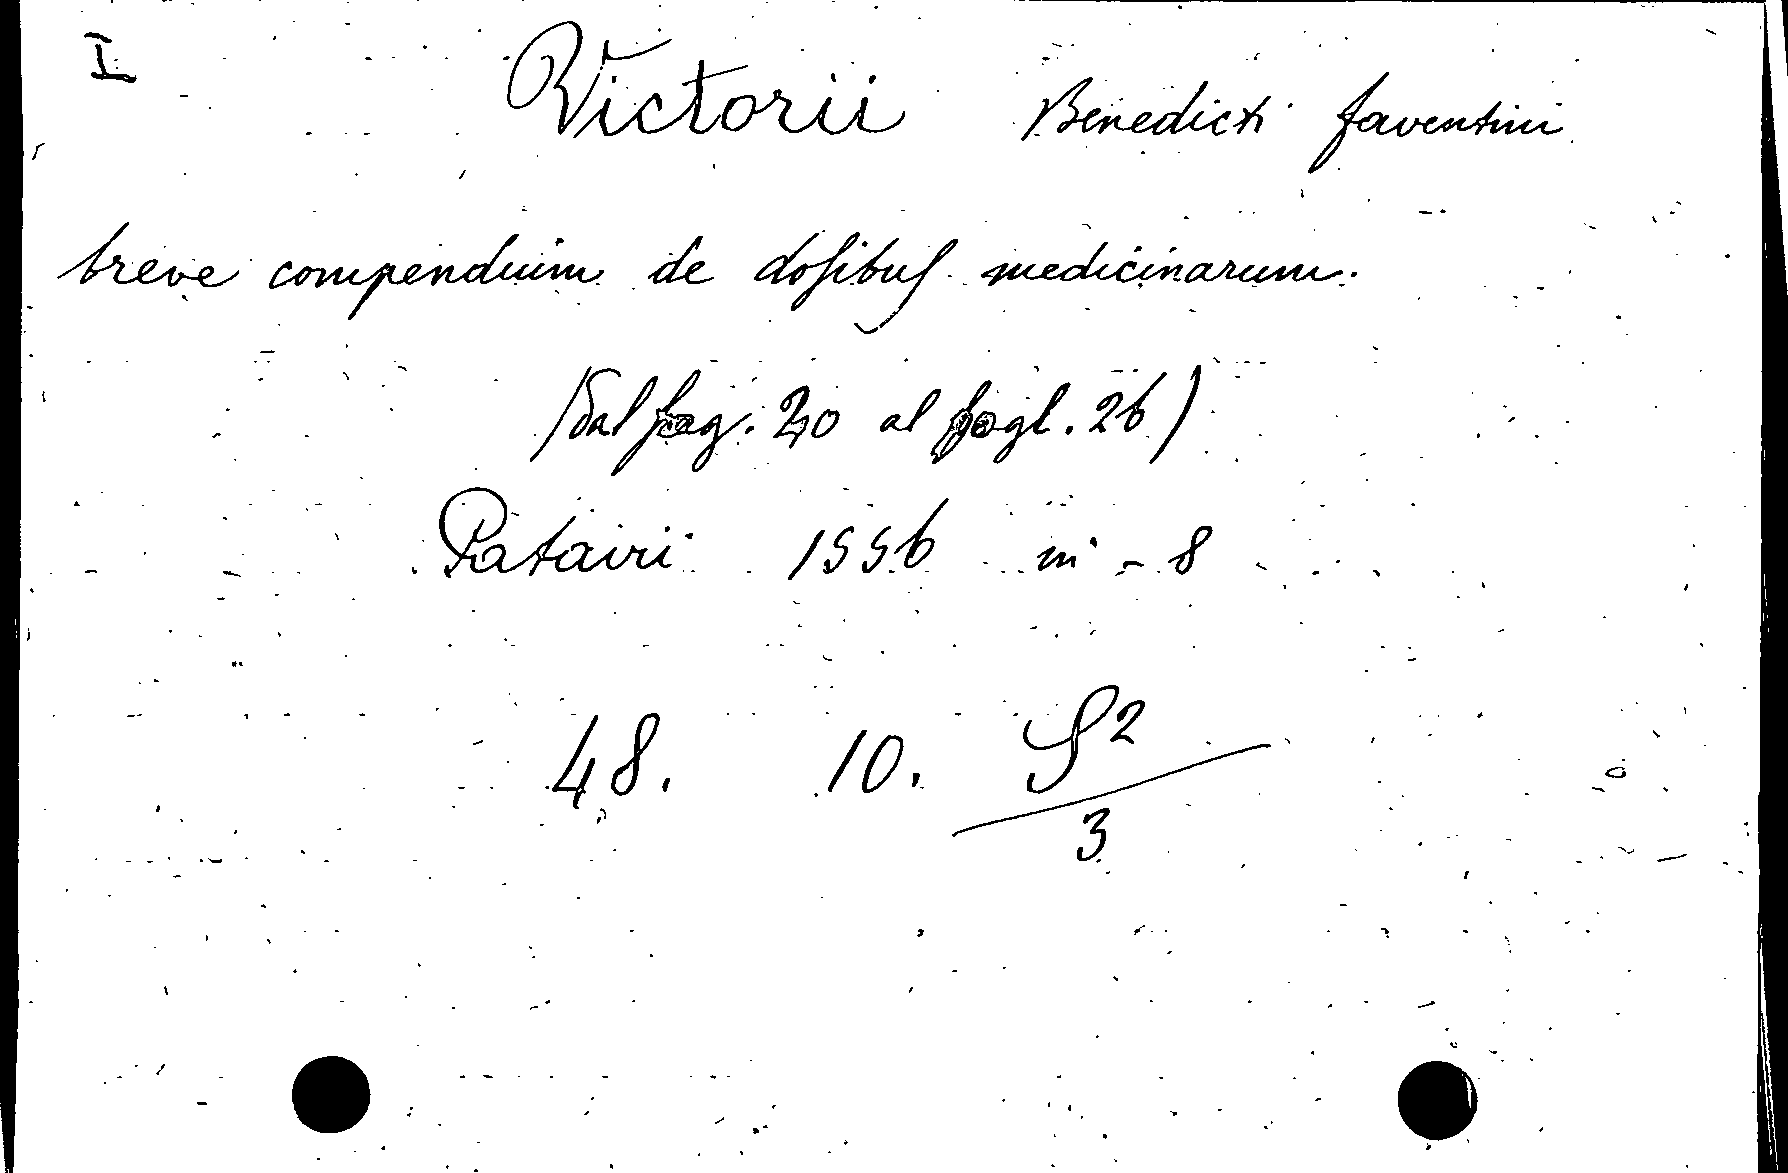 I
Victorii Benedicti faventini
breve compendium de dosibus medicinarum.
(dal fog. 20 al fogl. 26)
Patavii 1556 in - 8
48. 10. S2
3